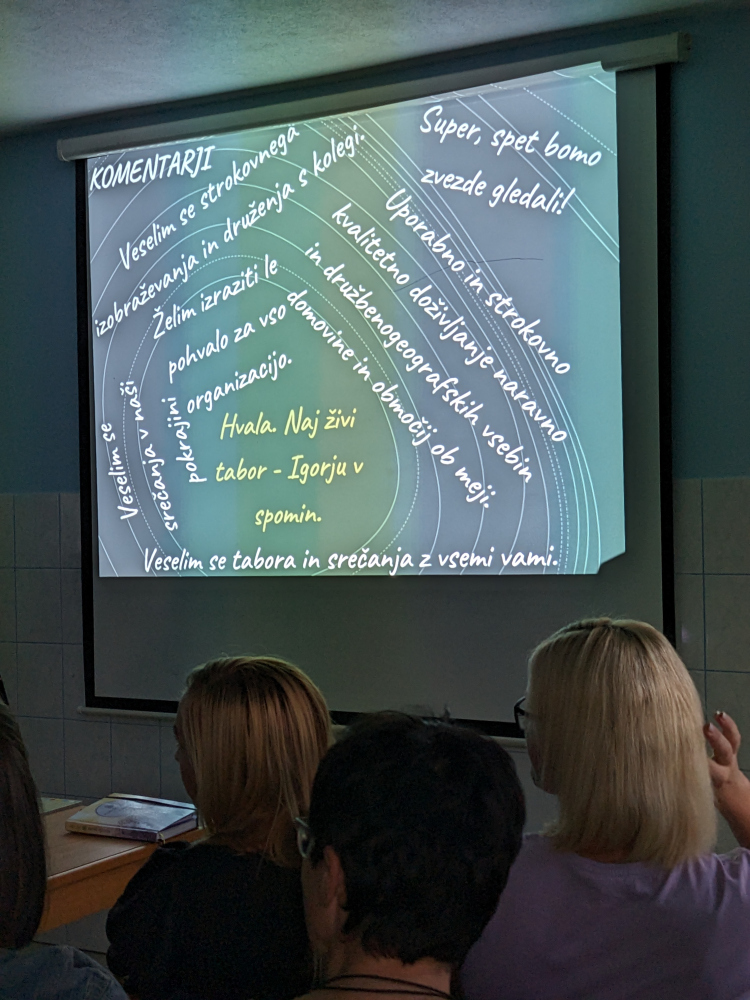 KOMENTARJI
Veselim se strokovnega
izobraževanja in druženja s kolegi.
Super, spet bomo
zvezde gledali!
Uporabno in strokovno
kvalitetno doživljanje naravno
in družbenogeografskih vsebin
domovine in območij ob meji.
Želim izraziti le
pohvalo za vso
organizacijo.
Veselim se
srečanja v naši
pokrajini
Hvala. Naj živi
tabor - Igorju v
spomin.
Veselim se tabora in srečanja z vsemi vami.